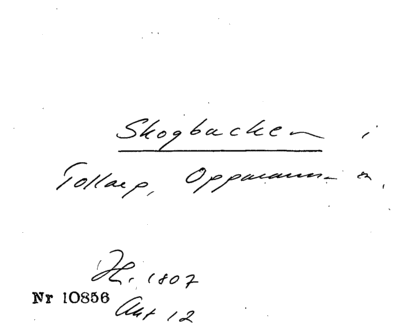 Skogbacken i
Tollarp, Oppmanna sn.
H. 1807
Nr 10856
Akt 12